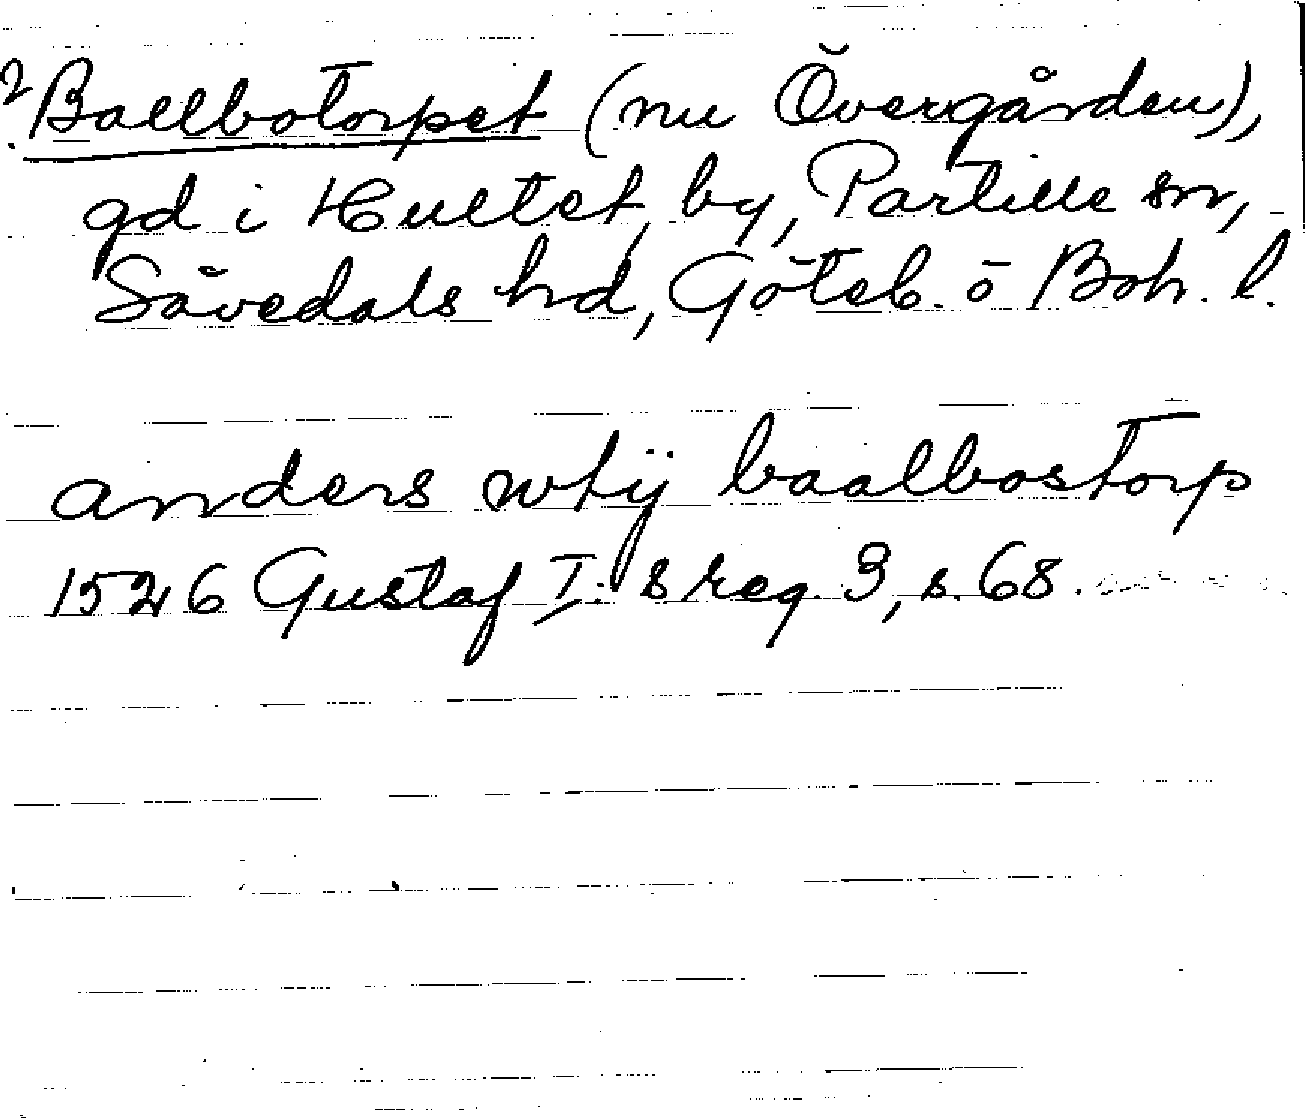 ? Ballbotorpet (nu Övergården),
gd i Hultet, by, Partille sn,
Sävedals hd, Göteb. o Boh. l.
anders wtij baalbostorp
1526 Gustaf I:s reg. 3, s. 68.